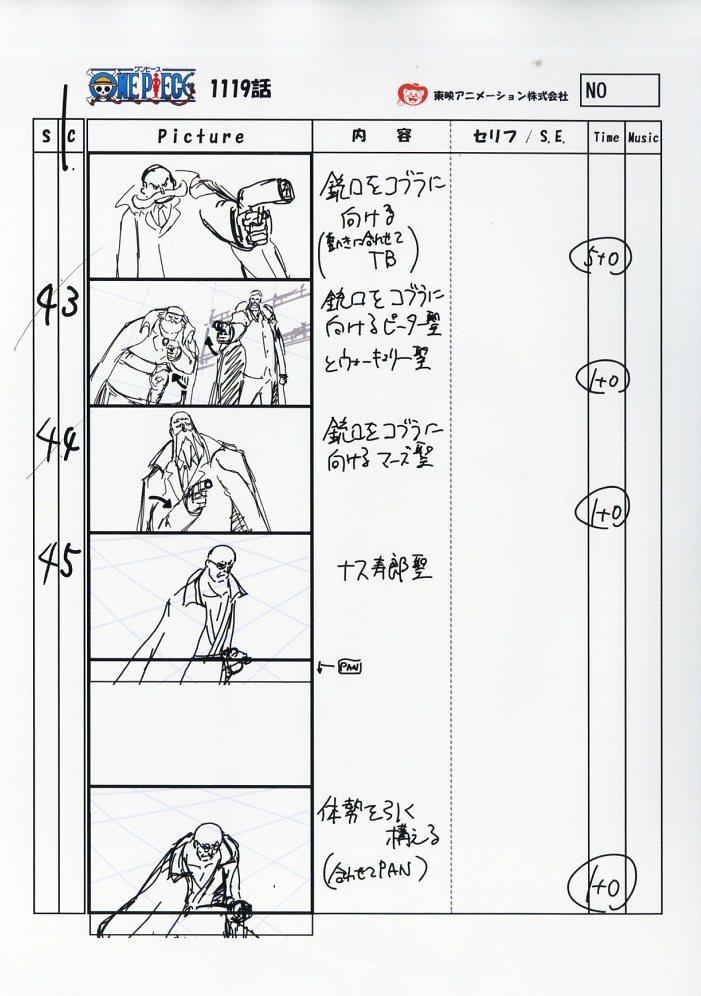 ワンピース
ONE PIECE 1119話
東映アニメーション株式会社
NO
S C Picture 内容 セリフ / S.E. Time Music
銃口をコブラに
向ける
(動きに合わせて
TB)
5+0
43
銃口をコブラに
向けるピーター聖
とウォーキュリー聖
1+0
44
銃口をコブラに
向けるマーズ聖
1+0
45
ナス寿郎聖
←PAN
体勢を引く
構える
(合わせてPAN)
1+0